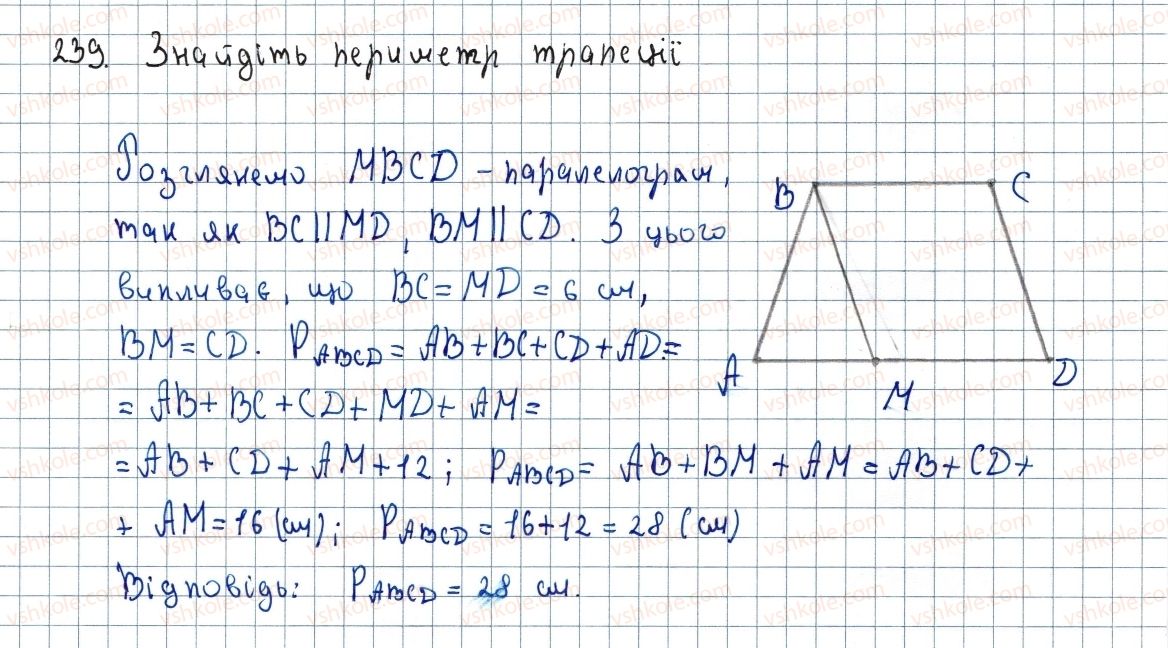 239. Знайдіть периметр трапеції
Розглянемо MBCD – паралелограм,
так як BC||MD, BM||CD. З цього
випливає, що BC = MD = 6 см,
BM = CD. P_ABCD = AB+BC+CD+AD=
= AB+BC+CD+MD+AM=
= AB+CD+AM+12; P_ABCD = AB+BM+AM = AB+CD+
+ AM = 16 (см); P_ABCD = 16+12 = 28 (см)
Відповідь: P_ABCD = 28 см.
B C
A M D
vshkole.com